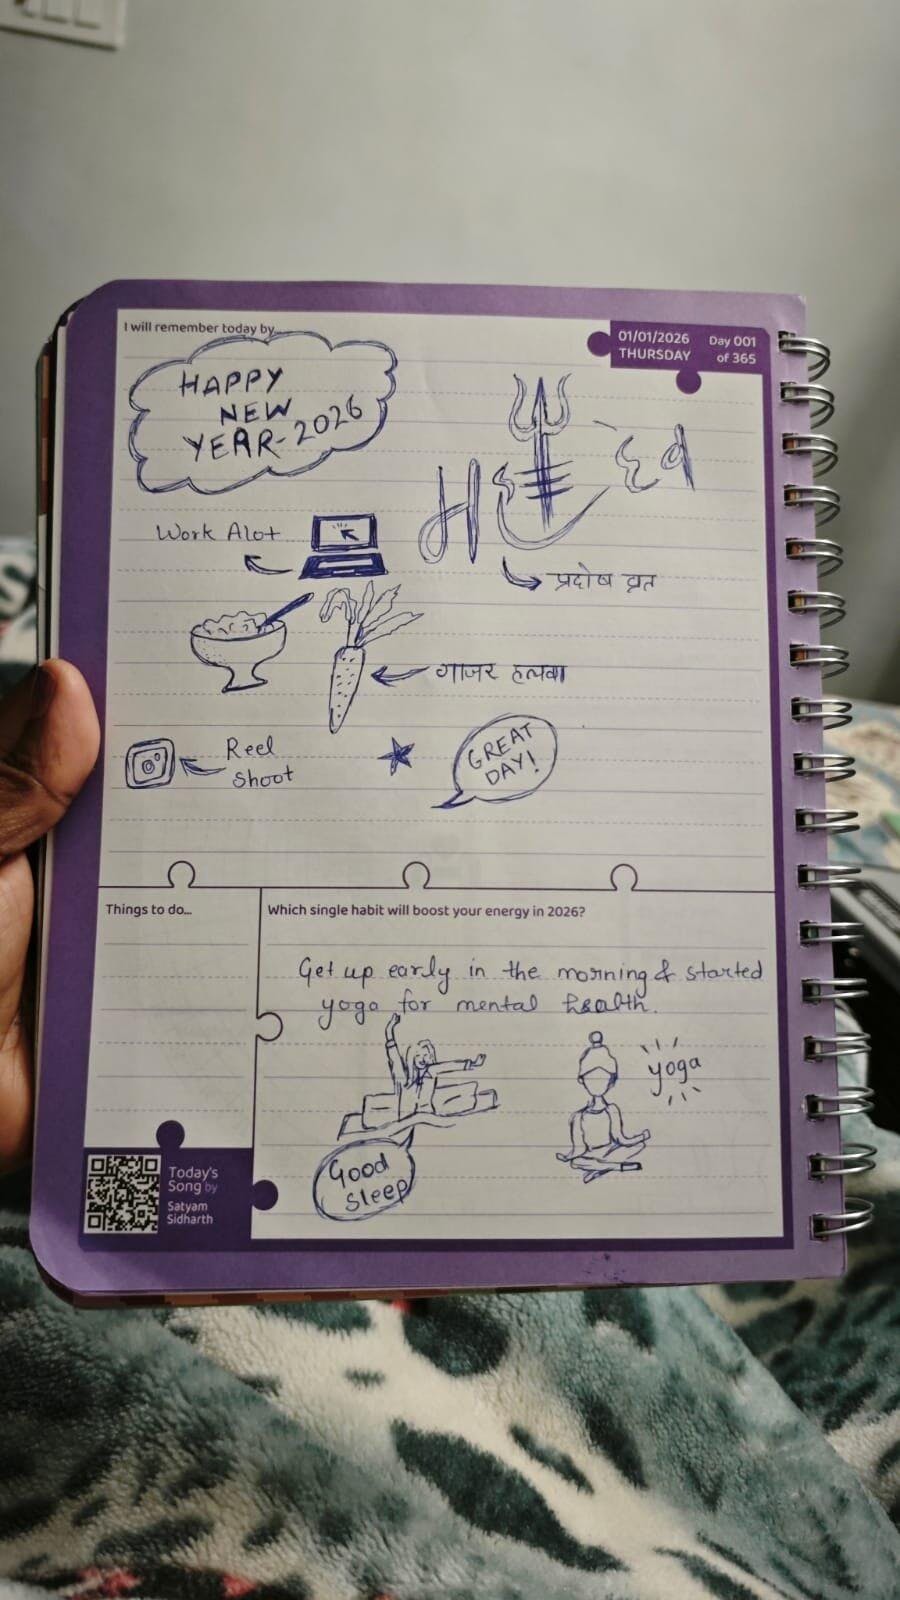 I will remember today by...
01/01/2026
THURSDAY
Day 001
of 365
HAPPY
NEW
YEAR-2026
महादेव
Work Alot
प्रदोष व्रत
गाजर हलवा
Reel
Shoot
GREAT
DAY!
Things to do...
Which single habit will boost your energy in 2026?
Get up early in the morning & started
yoga for mental health.
yoga
Good
Sleep
Today's
Song by
Satyam
Sidharth